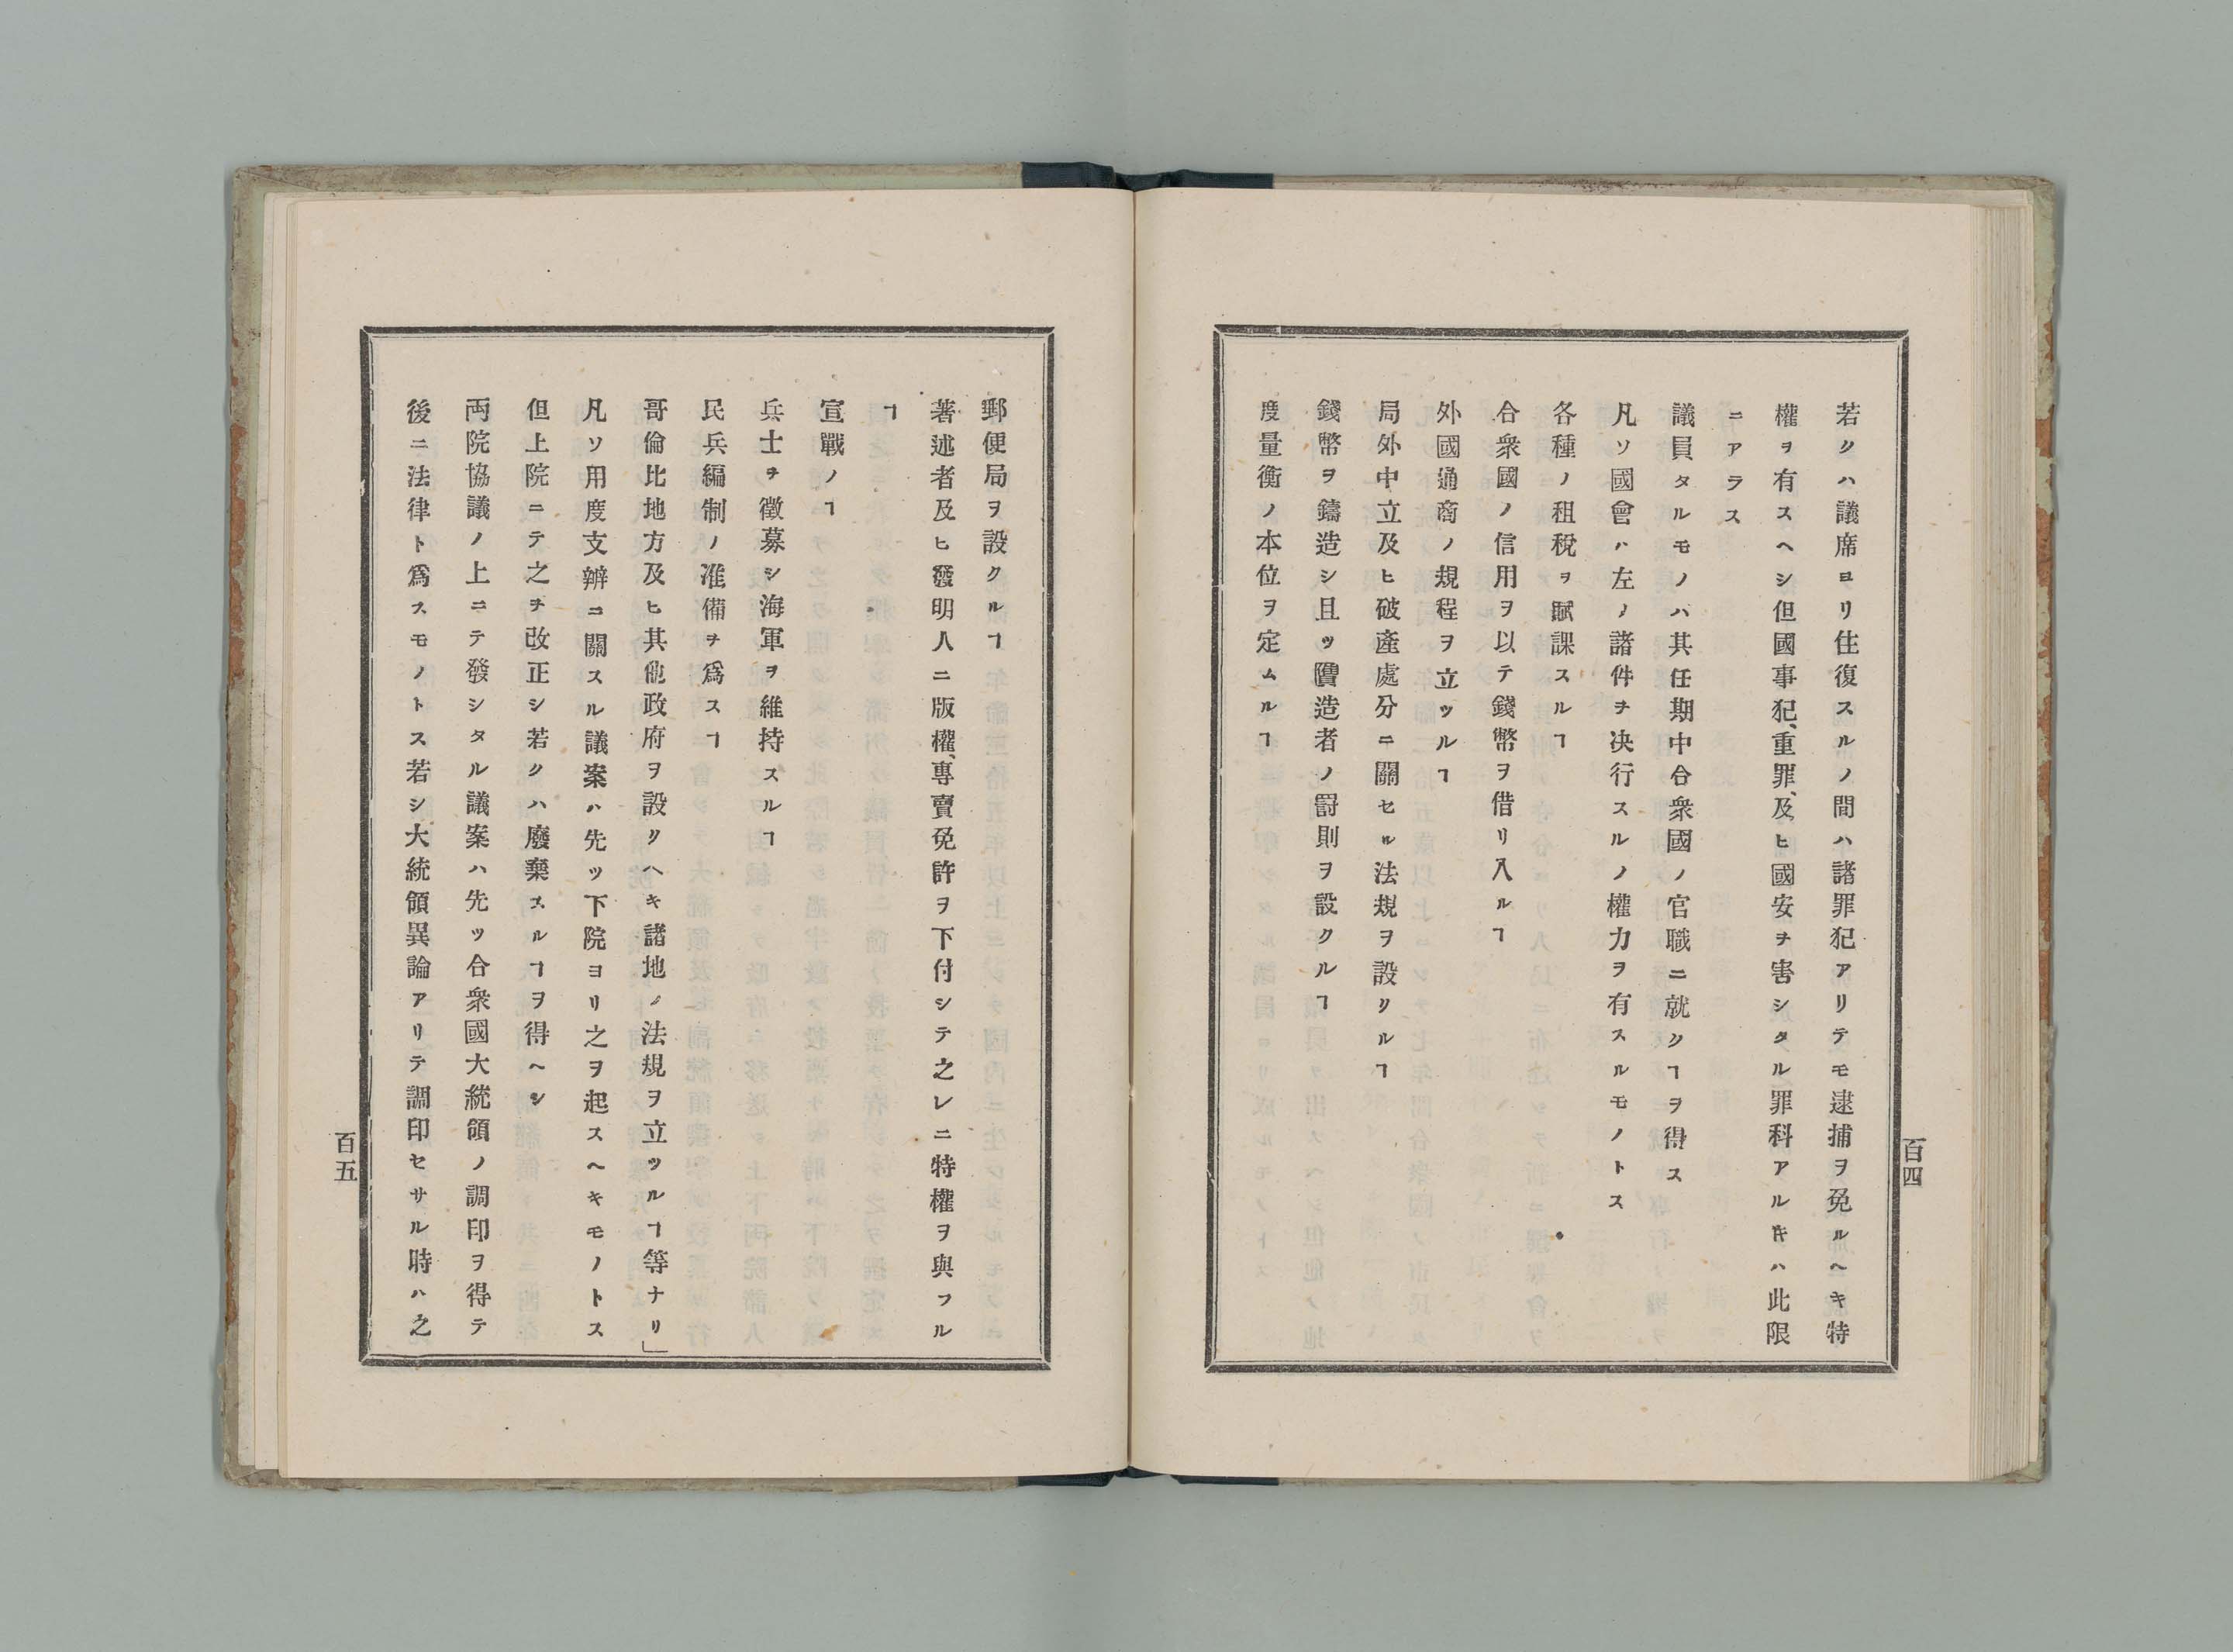 若クハ議席ヨリ住復スルノ間ハ諸罪犯アリテモ逮捕ヲ免ルヘキ特
權ヲ有スヘシ但國事犯、重罪、及ヒ國安ヲ害シタル罪科アルキハ此限
ニアラス
議員タルモノハ其任期中合衆國ノ官職ニ就クヿヲ得ス
凡ソ國會ハ左ノ諸件ヲ决行スルノ權力ヲ有スルモノトス
各種ノ租稅ヲ賦課スルヿ
合衆國ノ信用ヲ以テ錢幣ヲ借リ入ルヿ
外國通商ノ規程ヲ立ツルヿ
局外中立及ヒ破產處分ニ關セル法規ヲ設クルヿ
錢幣ヲ鑄造シ且ツ贋造者ノ罰則ヲ設クルヿ
度量衡ノ本位ヲ定ムルヿ
百四
郵便局ヲ設クルヿ
著述者及ヒ發明人ニ版權、專賣免許ヲ下付シテ之レニ特權ヲ與フル
ヿ
宣戰ノヿ
兵士ヲ徵募シ海軍ヲ維持スルヿ
民兵編制ノ准備ヲ爲スヿ
哥倫比地方及ヒ其他政府ヲ設クヘキ諸地ノ法規ヲ立ツルヿ等ナリ」
凡ソ用度支辨ニ關スル議案ハ先ツ下院ヨリ之ヲ起スヘキモノトス
但上院ニテ之ヲ改正シ若クハ廢棄スルヿヲ得ヘシ
両院協議ノ上ニテ發シタル議案ハ先ツ合衆國大統領ノ調印ヲ得テ
後ニ法律ト爲スモノトス若シ大統領異論アリテ調印セサル時ハ之
百五